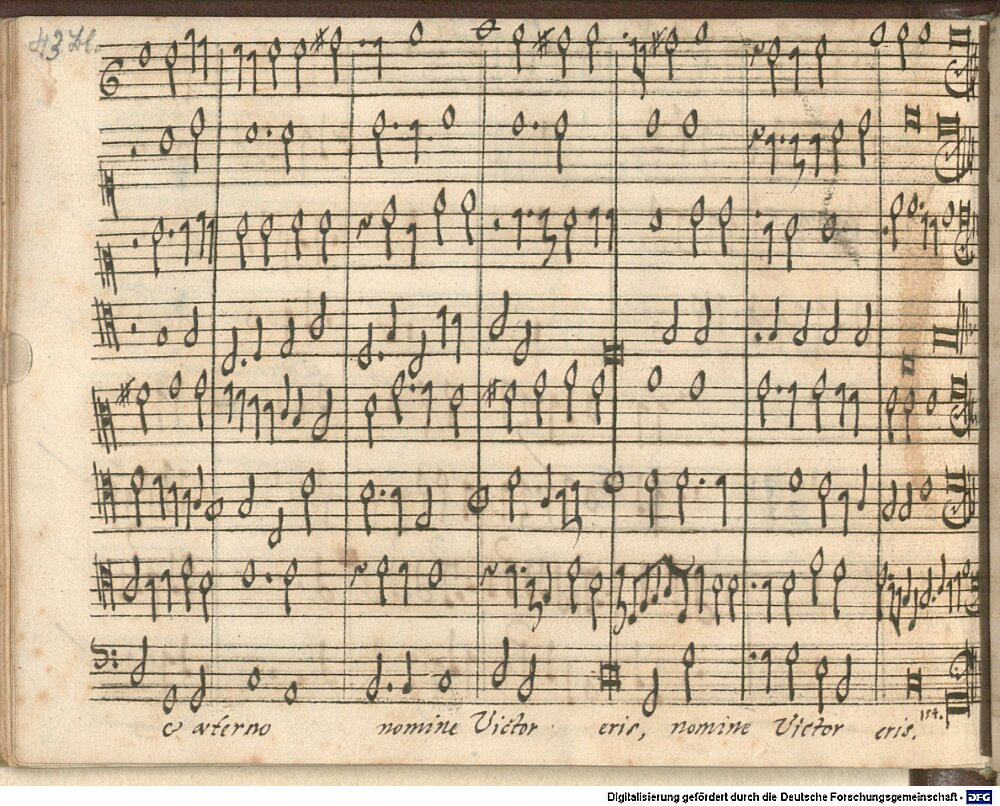 43 bl.
& æterno nomine Victor eris, nomine Victor eris.
154.
Digitalisierung gefördert durch die Deutsche Forschungsgemeinschaft - DFG